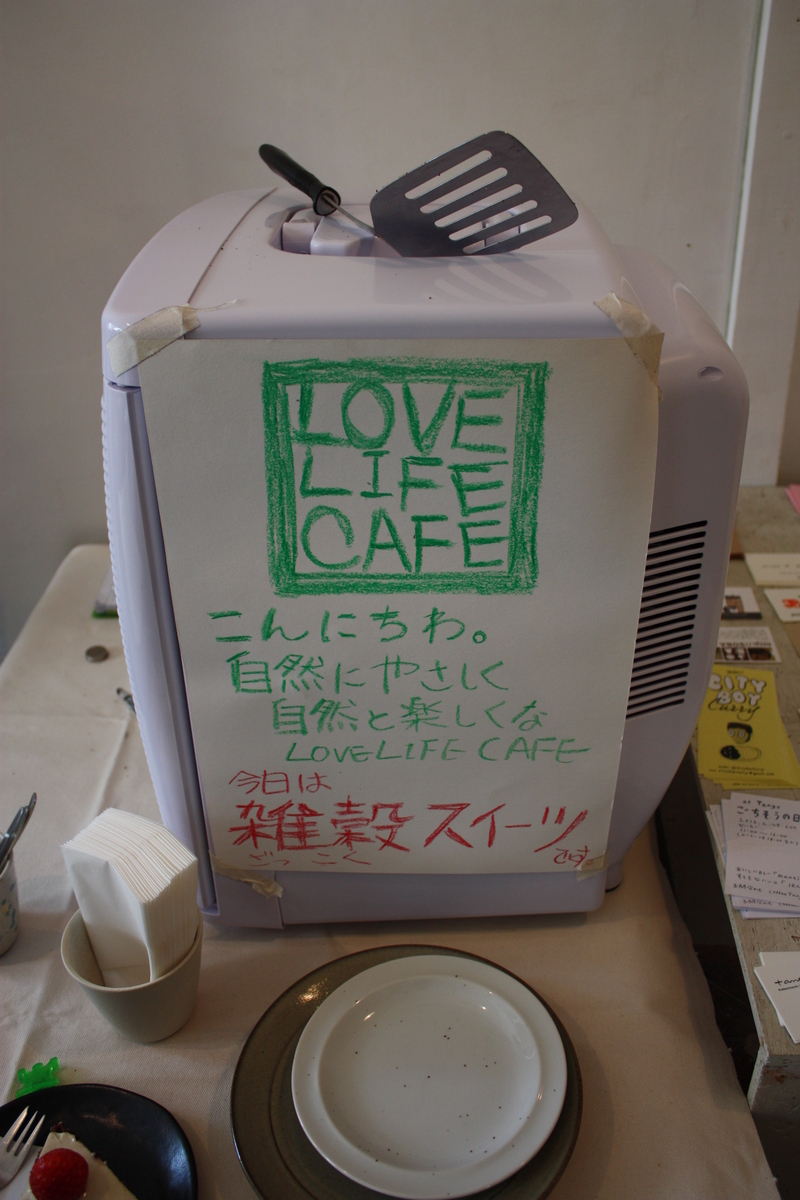 LOVE
LIFE
CAFE
こんにちわ。
自然にやさしく
自然と楽しくな
LOVELIFE CAFE
今日は
雑穀スイーツ
ざっこく
です。
CITY
BOY
Curry
at Tanya
ごちそうの日